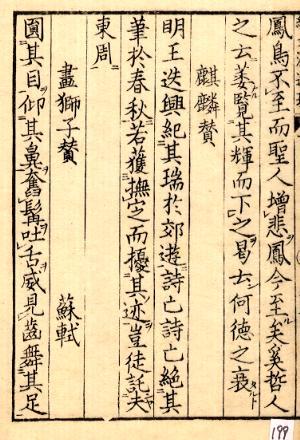 鳳鳥不至而聖人增悲鳳今至矣奚哲人
之云萎覽其輝而下之曷云何德之衰
麒麟贊
明王迭興紀其瑞於郊遊詩亡詩亡絕其
筆於春秋若獲撫之而擾其迹豈徒託夫
東周
畫獅子贊 蘇軾
圓其目仰其鼻奮髯吐舌威見齒舞其足
199